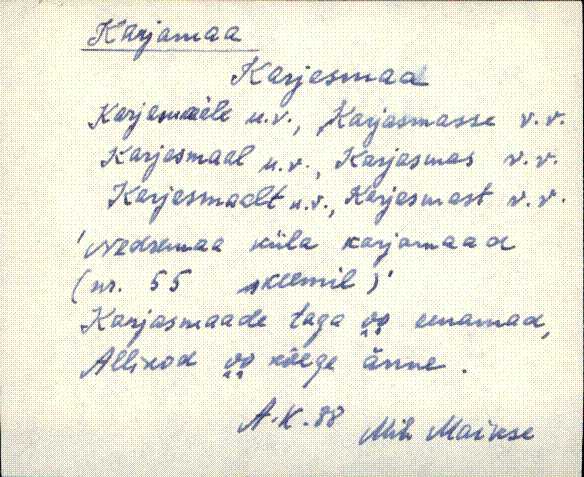 Karjamaa
Karjesmaa
Karjesmaale u.v., Karjasmasse v.v.
Karjesmaal u.v., Karjasmas v.v.
Karjesmaalt u.v., Karjesmast v.v.
'Nedremaa küla karjamaad
(nr. 55 skeemil)'
Karjasmaade taga oo eenamad,
Allikod oo kõege änne.
A.K. 88 Mih Maikse